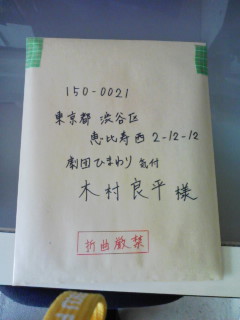 150-0021
東京都 渋谷区
恵比寿西 2-12-12
劇団ひまわり 気付
木村良平様
折曲厳禁